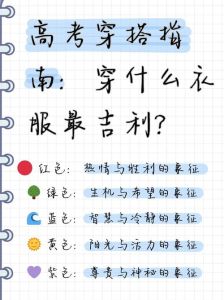 高考穿搭指
南：穿什么衣
服最吉利？
红色：热情与胜利的象征
绿色：生机与希望的象征
蓝色：智慧与冷静的象征
黄色：阳光与活力的象征
紫色：尊贵与神秘的象征